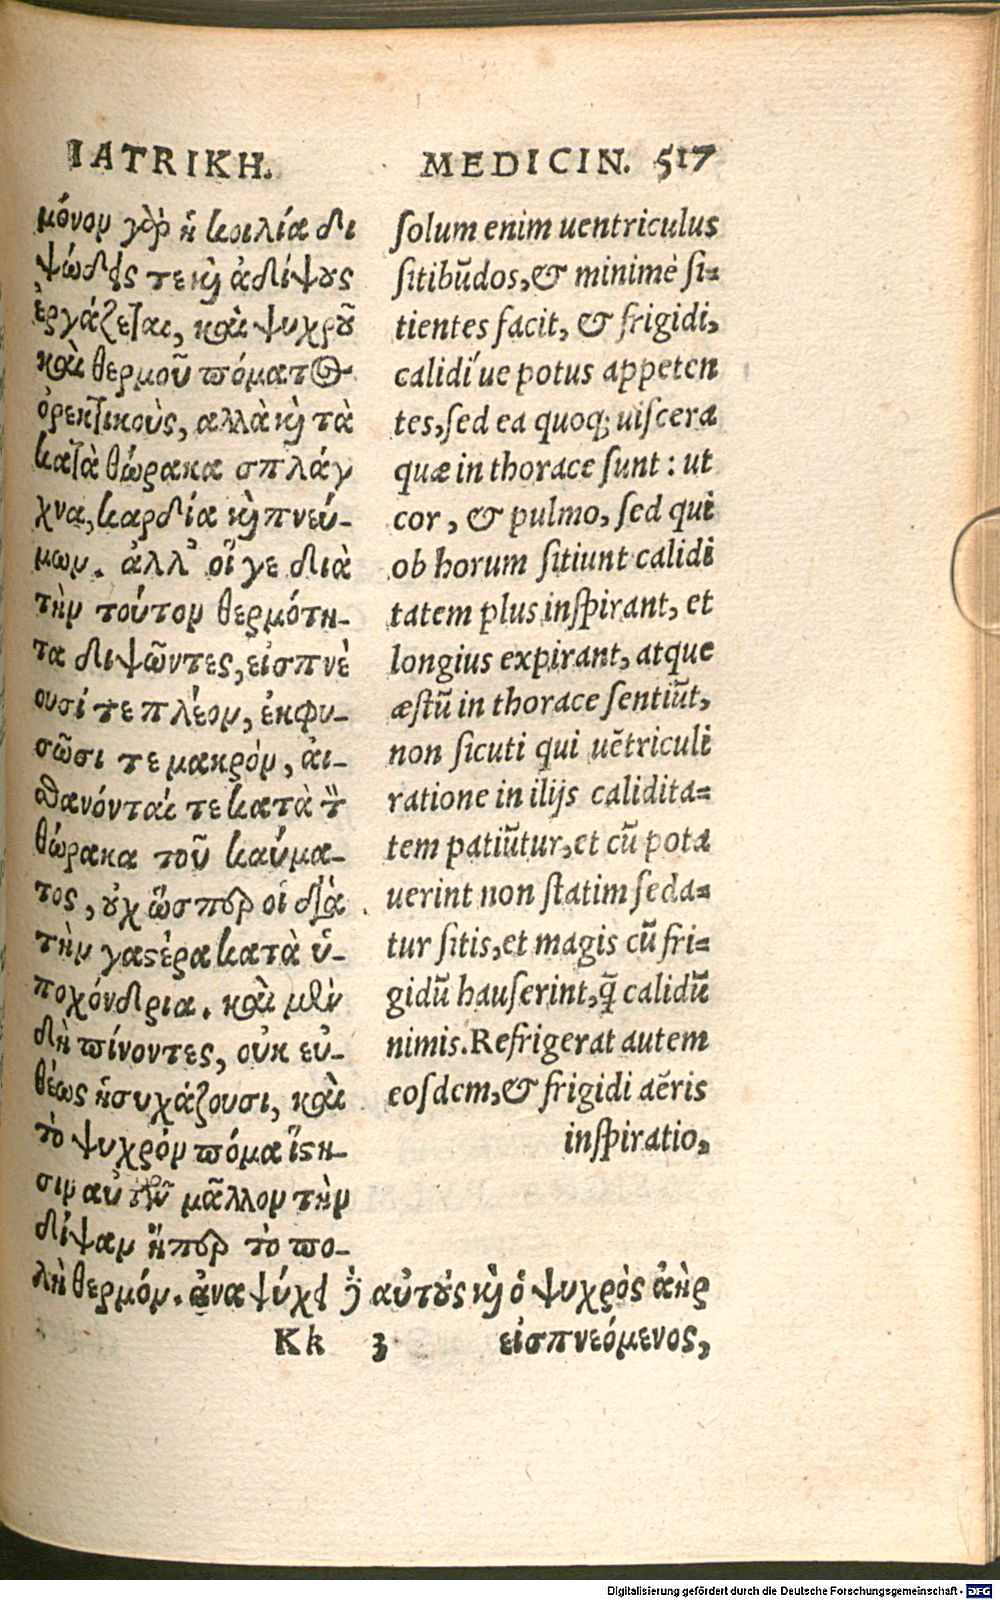 ΙΑΤΡΙΚΗ.
μόνον γὰρ ἡ κοιλία δι
ψώδεις τε καὶ ἀδίψους
ἐργάζεται, καὶ ψυχροῦ
καὶ θερμοῦ πόματος
ὀρεκτικοὺς, αλλὰ καὶ τὰ
κατὰ θώρακα σπλάγ
χνα, καρδία καὶ πνεύ-
μων. ἀλλ' οἵ γε διὰ
τὴν τούτον θερμότη-
τα διψῶντες, εἰσπνέ
ουσί τε πλέον, ἐκφυ-
σῶσι τε μακρὸν, ἀι-
θανόνταί τε κατὰ τὸν
θώρακα τοῦ καύμα-
τος, οὐχ ὥσπερ οἱ διὰ
τὴν γαστέρα κατὰ ὑ-
ποχόνδρια. καὶ μὲν
δὴ πίνοντες, οὐκ εὐ-
θέως ἡσυχάζουσι, καὶ
τὸ ψυχρὸν πόμα ἵστη-
σιν αὐτῶν μᾶλλον τὴν
δίψαν ἤπερ τὸ πο-
λὴ θερμόν. ἀναψύχει δὲ αὐτοὺς καὶ ὁ ψυχρὸς ἀὴρ
Kk 3 εἰσπνεόμενος,
MEDICIN. 517
ſolum enim uentriculus
ſitibūdos, & minimè ſi=
tientes facit, & frigidi,
calidíue potus appeten
tes, ſed ea quoq; uiſcera
quæ in thorace ſunt: ut
cor, & pulmo, ſed qui
ob horum ſitiunt calidi
tatem plus inſpirant, et
longius expirant, atque
æſtū in thorace ſentiūt,
non ſicuti qui uētriculi
ratione in ilijs calidita=
tem patiūtur, et cū pota
uerint non ſtatim ſeda=
tur ſitis, et magis cū fri=
gidū hauſerint, q̄ calidū
nimis. Refrigerat autem
eoſdem, & frigidi aëris
inſpiratio,
Digitalisierung gefördert durch die Deutsche Forschungsgemeinschaft - DFG